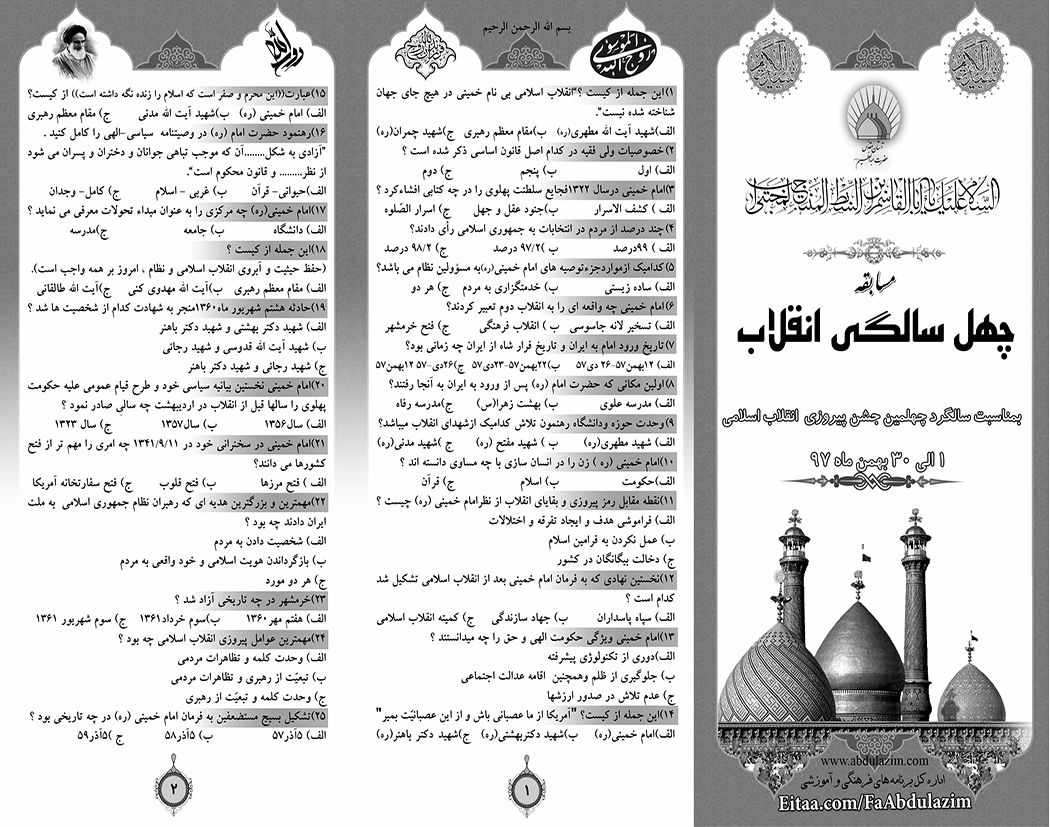 السلام علیک یا اباالقاسم ابن السبط المنتجب المجتبی
مسابقه
چهل سالگی انقلاب
بمناسبت سالگرد چهلمین جشن پیروزی انقلاب اسلامی
۱ الی ۳۰ بهمن ماه ۹۷
www.abdulazim.com
اداره کل برنامه‌های فرهنگی و آموزشی
Eitaa.com/FaAbdulazim
بسم الله الرحمن الرحیم
۱)این جمله از کیست ؟"انقلاب اسلامی بی نام خمینی در هیچ جای جهان
شناخته شده نیست".
الف)شهید آیت الله مطهری(ره) ب)مقام معظم رهبری ج)شهید چمران(ره)
۲)خصوصیات ولی فقیه در کدام اصل قانون اساسی ذکر شده است ؟
الف) اول ب) پنجم ج) دوم
۳)امام خمینی درسال ۱۳۲۲فجایع سلطنت پهلوی را در چه کتابی افشاءکرد ؟
الف ) کشف الاسرار ب)جنود عقل و جهل ج) اسرار الصّلوه
۴)چند درصد از مردم در انتخابات به جمهوری اسلامی رأی دادند؟
الف ) ۹۹درصد ب )۹۷/۲ درصد ج )۹۸/۲ درصد
۵)کدامیک ازمواردجزءتوصیه های امام خمینی(ره)به مسؤولین نظام می باشد؟
الف) ساده زیستی ب) خدمتگزاری به مردم ج) هر دو
۶)امام خمینی چه واقعه ای را به انقلاب دوم تعبیر کردند؟
الف) تسخیر لانه جاسوسی ب ) انقلاب فرهنگی ج) فتح خرمشهر
۷) تاریخ ورود امام به ایران و تاریخ فرار شاه از ایران چه زمانی بود؟
الف) ۱۲بهمن۵۷-۲۶ دی۵۷ ب)۲۲بهمن۵۷-۲۳دی۵۷ ج)۲۶دی-۵۷ ۱۲بهمن۵۷
۸) اولین مکانی که حضرت امام (ره) پس از ورود به ایران به آنجا رفتند؟
الف) مدرسه علوی ب) بهشت زهرا(س) ج)مدرسه رفاه
۹)وحدت حوزه ودانشگاه رهنمون تلاش کدامیک ازشهدای انقلاب میباشد؟
الف) شهید مطهری(ره) ب ) شهید مفتح (ره) ج )شهید مدنی(ره)
۱۰)امام خمینی (ره ) زن را در انسان سازی با چه مساوی دانسته اند ؟
الف)حکومت ب) اسلام ج) قرآن
۱۱)نقطه مقابل رمز پیروزی و بقایای انقلاب از نظرامام خمینی (ره) چیست ؟
الف) فراموشی هدف و ایجاد تفرقه و اختلالات
ب) عمل نکردن به فرامین اسلام
ج) دخالت بیگانگان در کشور
۱۲)نخستین نهادی که به فرمان امام خمینی بعد از انقلاب اسلامی تشکیل شد
کدام است ؟
الف) سپاه پاسداران ب) جهاد سازندگی ج) کمیته انقلاب اسلامی
۱۳)امام خمینی ویژگی حکومت الهی و حق را چه میدانستند ؟
الف)دوری از تکنولوژی پیشرفته
ب) جلوگیری از ظلم وهمچنین اقامه عدالت اجتماعی
ج) عدم تلاش در صدور ارزشها
۱۴)این جمله از کیست؟ "آمریکا از ما عصبانی باش و از این عصبانیّت بمیر"
الف)امام خمینی(ره) ب)شهید دکتربهشتی(ره) ج)شهید دکتر باهنر(ره)
۱
۱۵)عبارت((این محرم و صفر است که اسلام را زنده نگه داشته است)) از کیست؟
الف) امام خمینی (ره) ب)شهید آیت الله مدنی ج) مقام معظم رهبری
۱۶)رهنمود حضرت امام (ره) در وصیتنامه سیاسی-الهی را کامل کنید .
"آزادی به شکل........آن که موجب تباهی جوانان و دختران و پسران می شود
از نظر......... و قانون محکوم است".
الف)حیوانی- قرآن ب) غربی - اسلام ج) کامل- وجدان
۱۷)امام خمینی(ره) چه مرکزی را به عنوان مبداء تحولات معرفی می نماید ؟
الف) دانشگاه ب) جامعه ج)مدرسه
۱۸)این جمله از کیست ؟
(حفظ حیثیت و آبروی انقلاب اسلامی و نظام ، امروز بر همه واجب است).
الف) مقام معظم رهبری ب)آیت الله مهدوی کنی ج)آیت الله طالقانی
۱۹)حادثه هشتم شهریور ماه۱۳۶۰منجر به شهادت کدام از شخصیت ها شد ؟
الف) شهید دکتر بهشتی و شهید دکتر باهنر
ب) شهید آیت الله قدوسی و شهید رجائی
ج) شهید رجائی و شهید دکتر باهنر
۲۰)امام خمینی نخستین بیانیه سیاسی خود و طرح قیام عمومی علیه حکومت
پهلوی را سالها قبل از انقلاب در اردیبهشت چه سالی صادر نمود ؟
الف) سال۱۳۵۶ ب) سال۱۳۵۷ ج) سال ۱۳۲۳
۲۱)امام خمینی در سخنرانی خود در ۱۳۴۱/۹/۱۱ چه امری را مهم تر از فتح
کشورها می دانند؟
الف ) فتح مرزها ب) فتح قلوب ج) فتح سفارتخانه آمریکا
۲۲)مهمترین و بزرگترین هدیه ای که رهبران نظام جمهوری اسلامی به ملت
ایران دادند چه بود ؟
الف) شخصیت دادن به مردم
ب) بازگرداندن هویت اسلامی و خود واقعی به مردم
ج) هر دو مورد
۲۳)خرمشهر در چه تاریخی آزاد شد ؟
الف) هفتم مهر۱۳۶۰ ب)سوم خرداد۱۳۶۱ ج) سوم شهریور ۱۳۶۱
۲۴)مهمترین عوامل پیروزی انقلاب اسلامی چه بود ؟
الف) وحدت کلمه و تظاهرات مردمی
ب) تبعیّت از رهبری و تظاهرات مردمی
ج) وحدت کلمه و تبعیّت از رهبری
۲۵)تشکیل بسیج مستضعفین به فرمان امام خمینی (ره) در چه تاریخی بود ؟
الف) ۵آذر۵۷ ب) ۵آذر۵۸ ج )۵آذر۵۹
۲